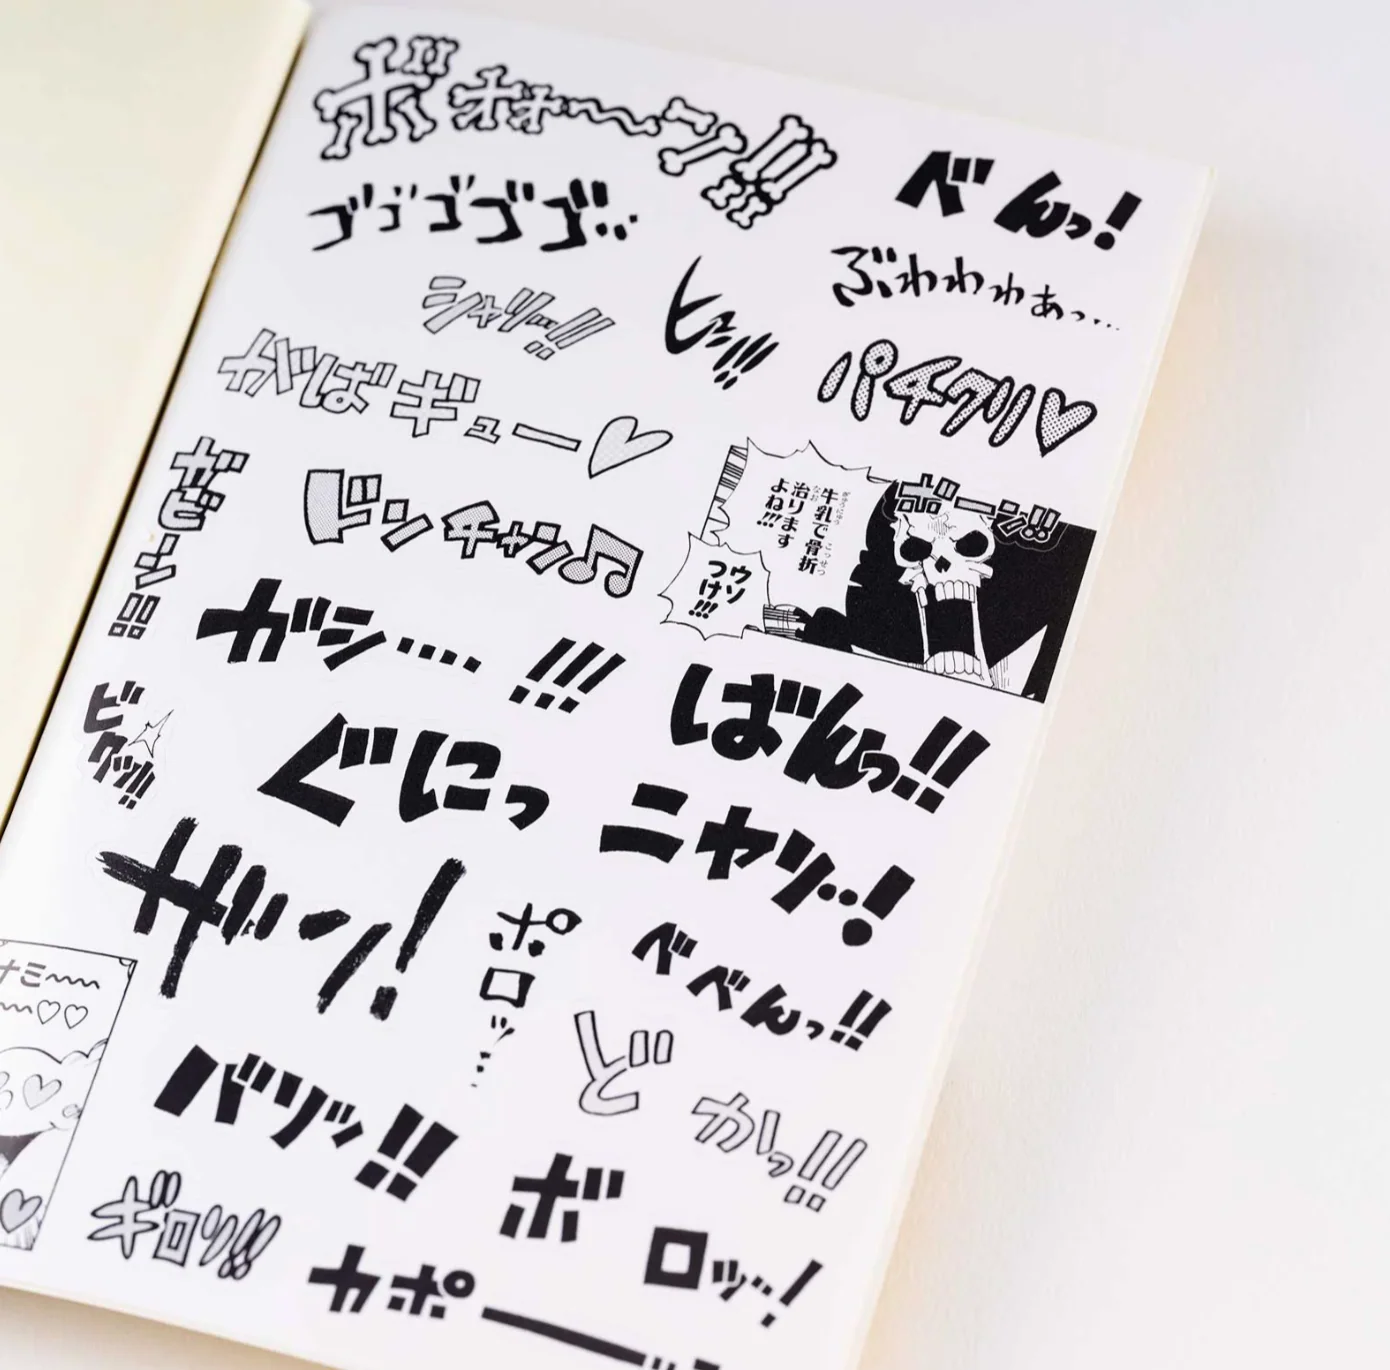 ボォォ〜ン!!
べんっ!
ゴゴゴゴゴ…
ぶわわわぁっ…
シャリッ…!!
ヒュッ!!!
パチクリ♡
がばギュー♡
ガビーン!!
ドンチャン♫
牛乳で骨折
治ります
よね!!!
ぎゅうにゅう
こっせつ
なお
ウソ
つけ!!!
ガーン!!
ガシ…. !!!
ばんっ!!
ビクッ!!!
ぐにっ
ニヤリ…!
ザンッ!
ポロッ…
べべんっ!!
ナミ〜〜
〜〜♡♡
どかっ!!
バリッ!!
ボロッ…!
ギロッ!!
カポー